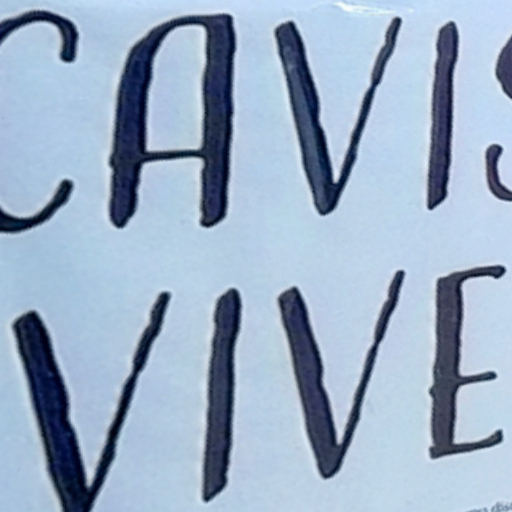 CAVIS
VIVE